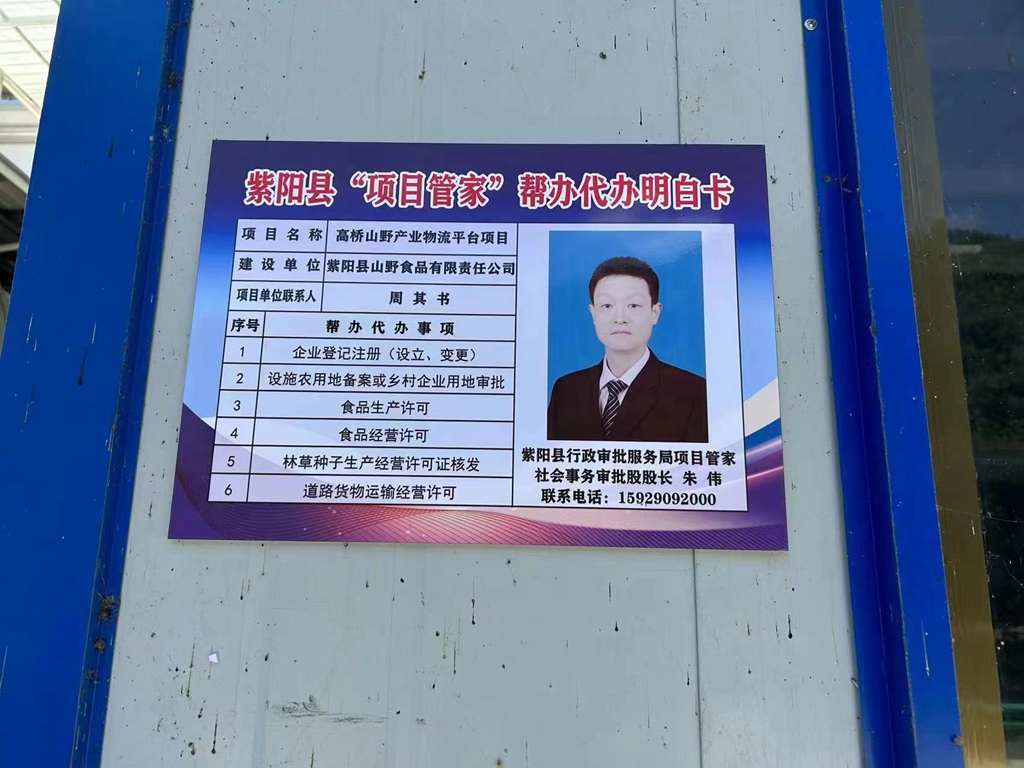 紫阳县“项目管家”帮办代办明白卡
项目名称 高桥山野产业物流平台项目
建设单位 紫阳县山野食品有限责任公司
项目单位联系人 周其书
序号 帮办代办事项
1 企业登记注册（设立、变更）
2 设施农用地备案或乡村企业用地审批
3 食品生产许可
4 食品经营许可
5 林草种子生产经营许可证核发
6 道路货物运输经营许可
紫阳县行政审批服务局项目管家
社会事务审批股股长 朱伟
联系电话：15929092000